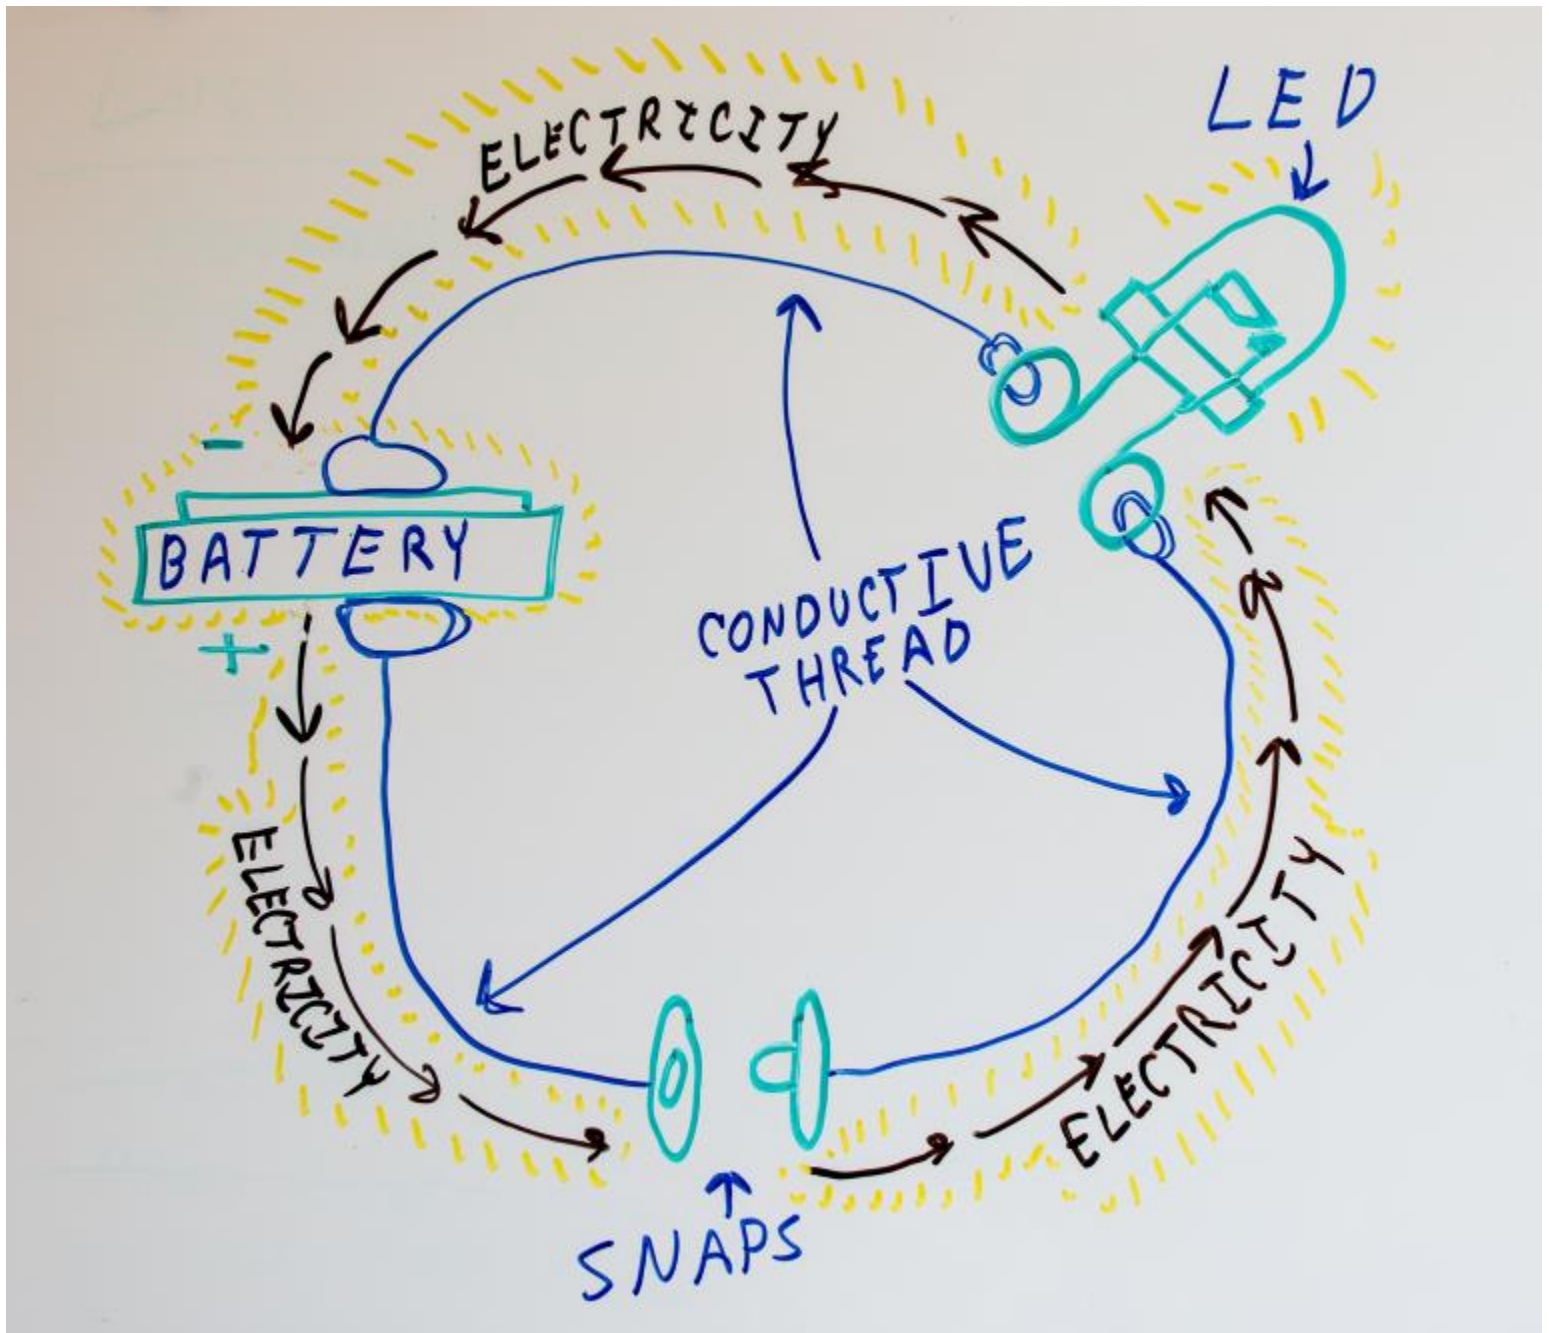 ELECTRICITY
LED
-
BATTERY
+
CONDUCTIVE
THREAD
ELECTRICITY
ELECTRICITY
SNAPS